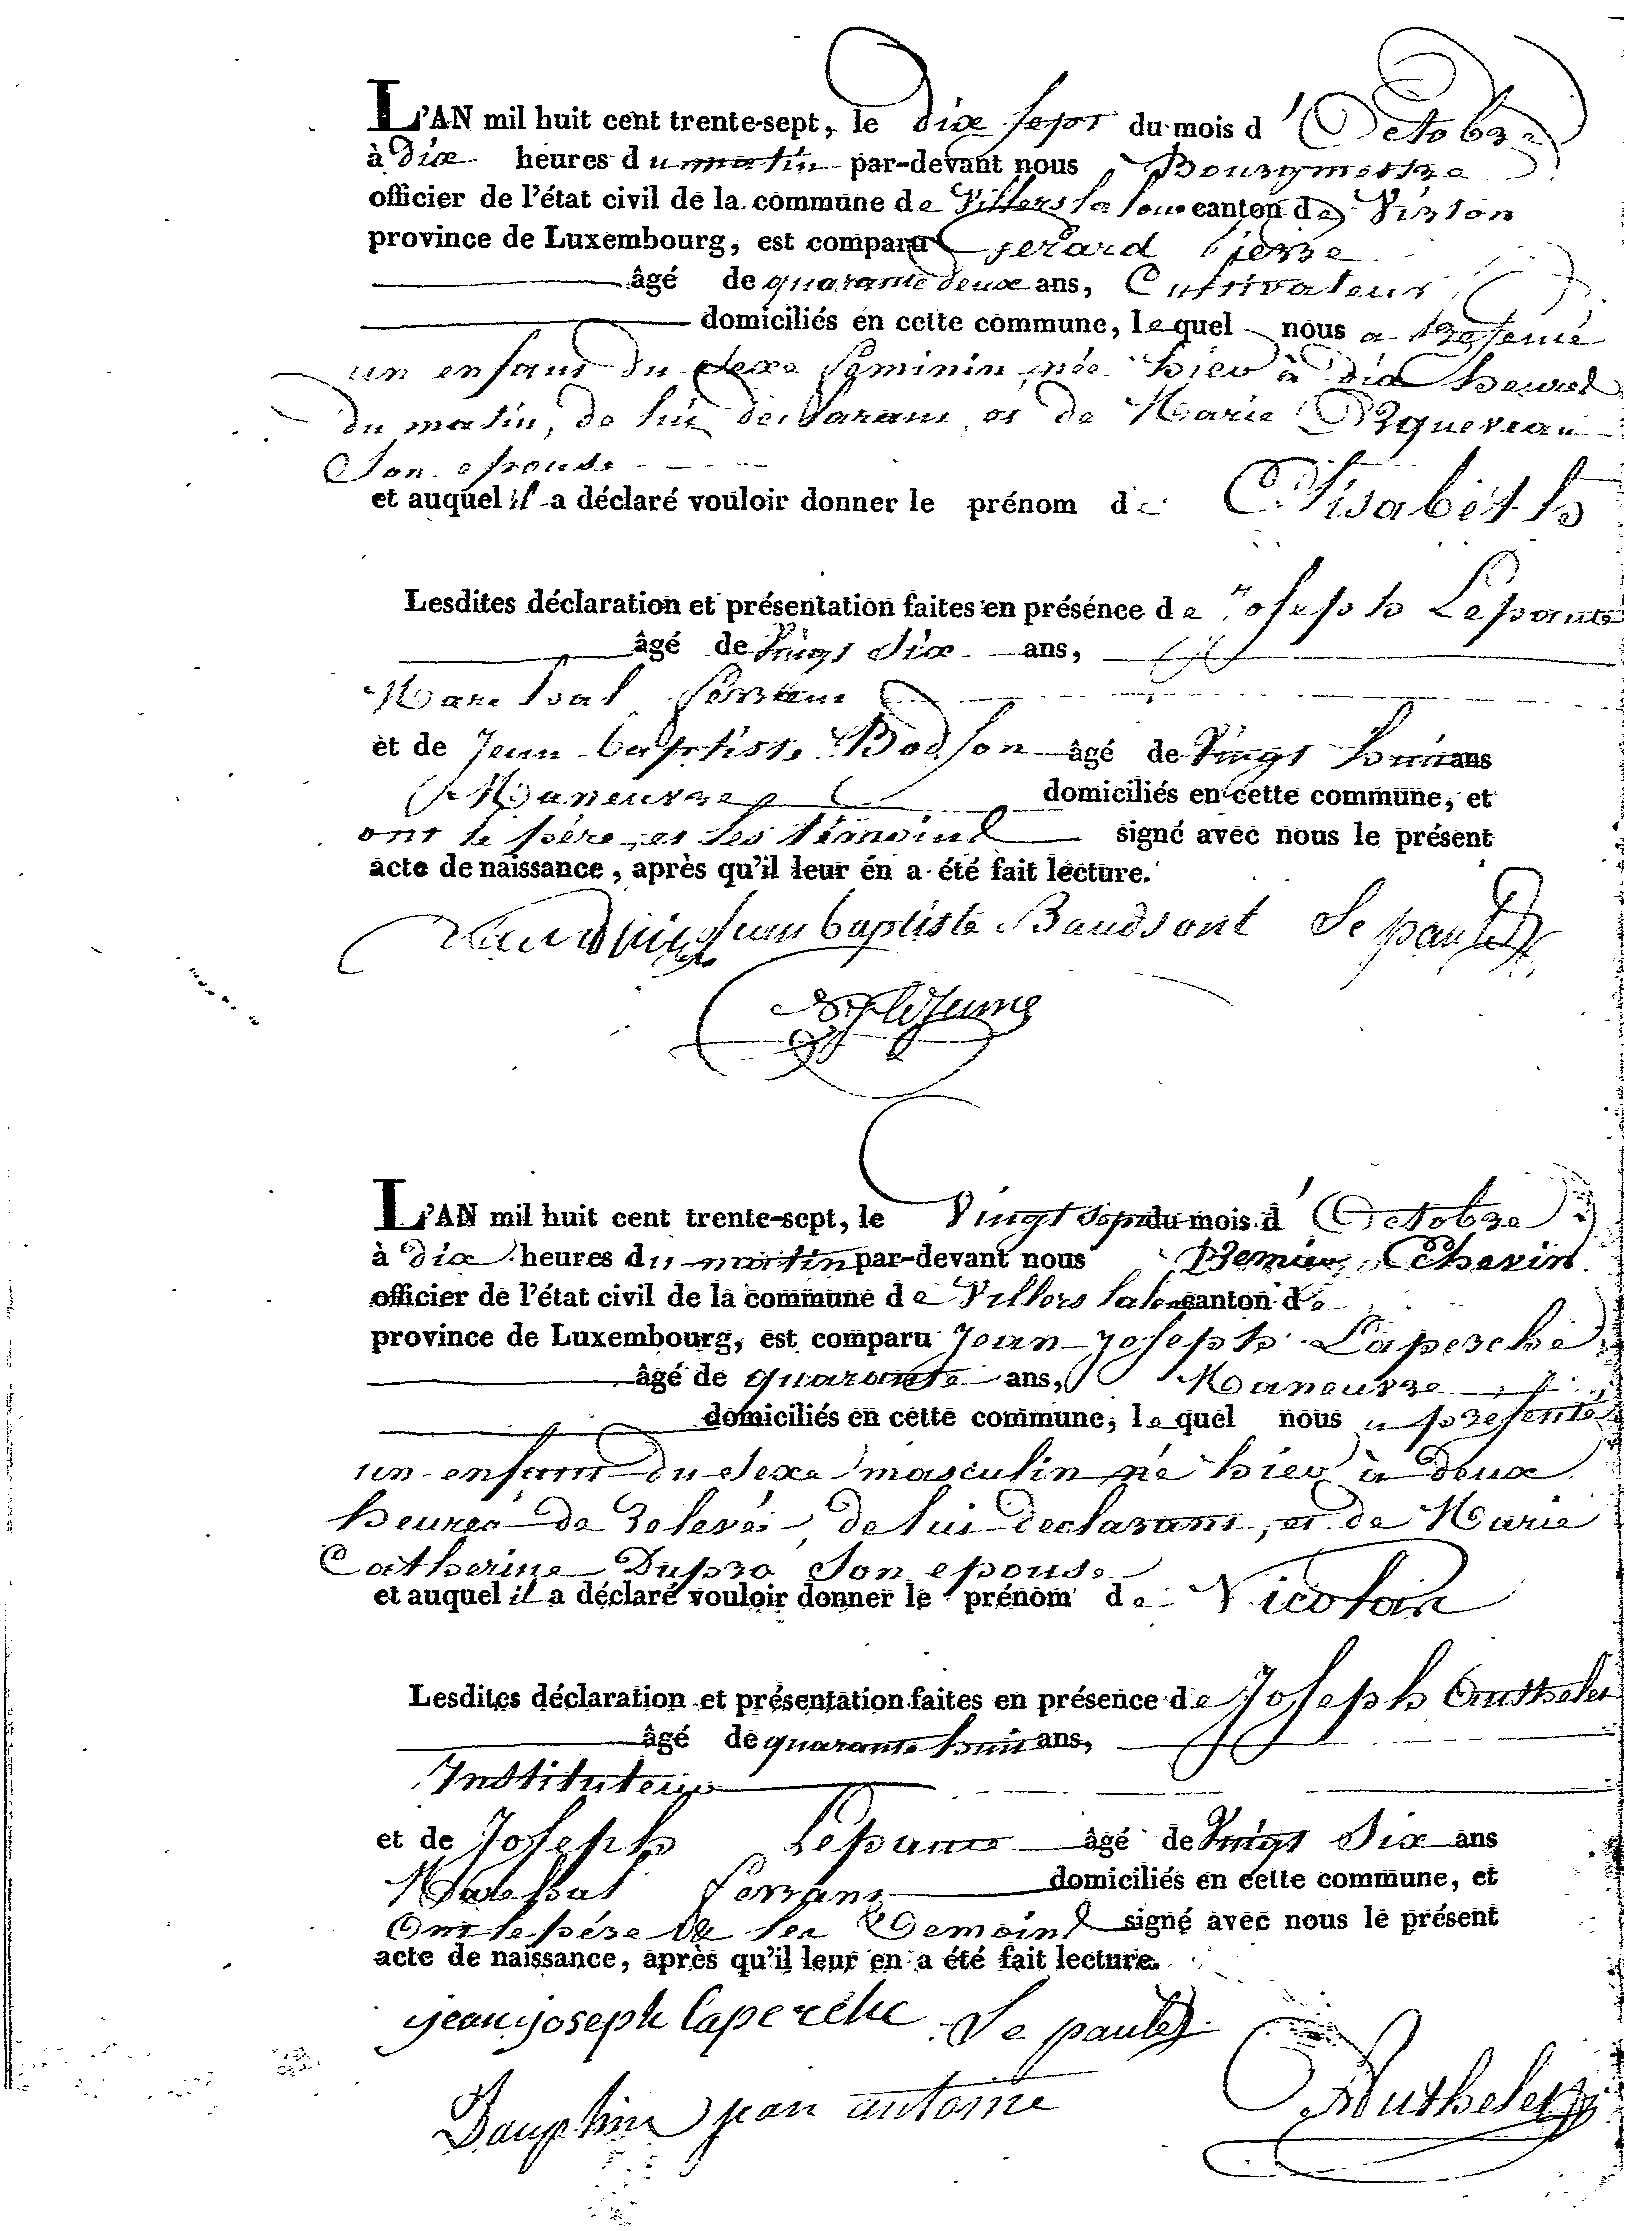 L'AN mil huit cent trente-sept, le dix sept du mois d'Octobre
à dix heures du matin par-devant nous Bourgmestre
officier de l'état civil de la commune de Villers la loue canton de Virton
province de Luxembourg, est comparu Gerard pierre
âgé de quarante deux ans, Cultivateur
domiciliés en cette commune, lequel nous a presenté
un enfant du sexe feminin, née hier à dix heures
du matin, de lui declarant, et de Marie
Son epouse
et auquel il a déclaré vouloir donner le prénom de Elisabeth
Lesdites déclaration et présentation faites en présence de Joseph Lepaute
âgé de Vingt Six ans,
Marechal ferrant
et de Jean baptiste Bodson âgé de Vingt huit ans
Maneuvre domiciliés en cette commune, et
ont le père et les témoins signé avec nous le présent
acte de naissance, après qu'il leur en a été fait lecture.
Jean baptiste Baudsont Le paute
Lejeune
L'AN mil huit cent trente-sept, le Vingt Sept du mois d'Octobre
à dix heures du matin par-devant nous Premier Echevin
officier de l'état civil de la commune de Villers laloue canton de
province de Luxembourg, est comparu Jean Joseph Laperche
âgé de quarante ans, Maneuvre
domiciliés en cette commune, lequel nous a presenté
un enfant du sexe masculin né hier à deux
heures de relevée, de lui declarant, et de Marie
Catherine Dupro Son epouse
et auquel il a déclaré vouloir donner le prénom de Nicolas
Lesdites déclaration et présentation faites en présence de Joseph Outhelet
âgé de quarante huit ans,
Instituteur
et de Joseph Lepaute âgé de Vingt Six ans
Marechal ferrant domiciliés en cette commune, et
Ont le père & les temoins signé avec nous le présent
acte de naissance, après qu'il leur en a été fait lecture.
jean joseph laperche Le paute
Dauphin jean antoine Authelet